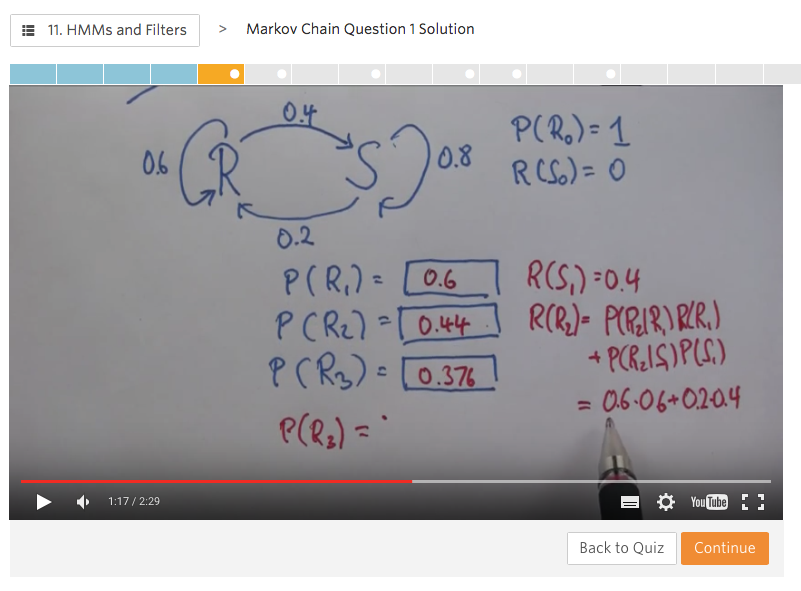 11. HMMs and Filters > Markov Chain Question 1 Solution
0.4
0.6 R S 0.8
0.2
P(R₀) = 1
R(S₀) = 0
P(R₁) = 0.6
P(R₂) = 0.44
P(R₃) = 0.376
P(R₃) =
R(S₁) = 0.4
R(R₂) = P(R₂|R₁) R(R₁)
+ P(R₂|S₁) P(S₁)
= 0.6·0.6+0.2·0.4
1:17 / 2:29
YouTube
Back to Quiz
Continue